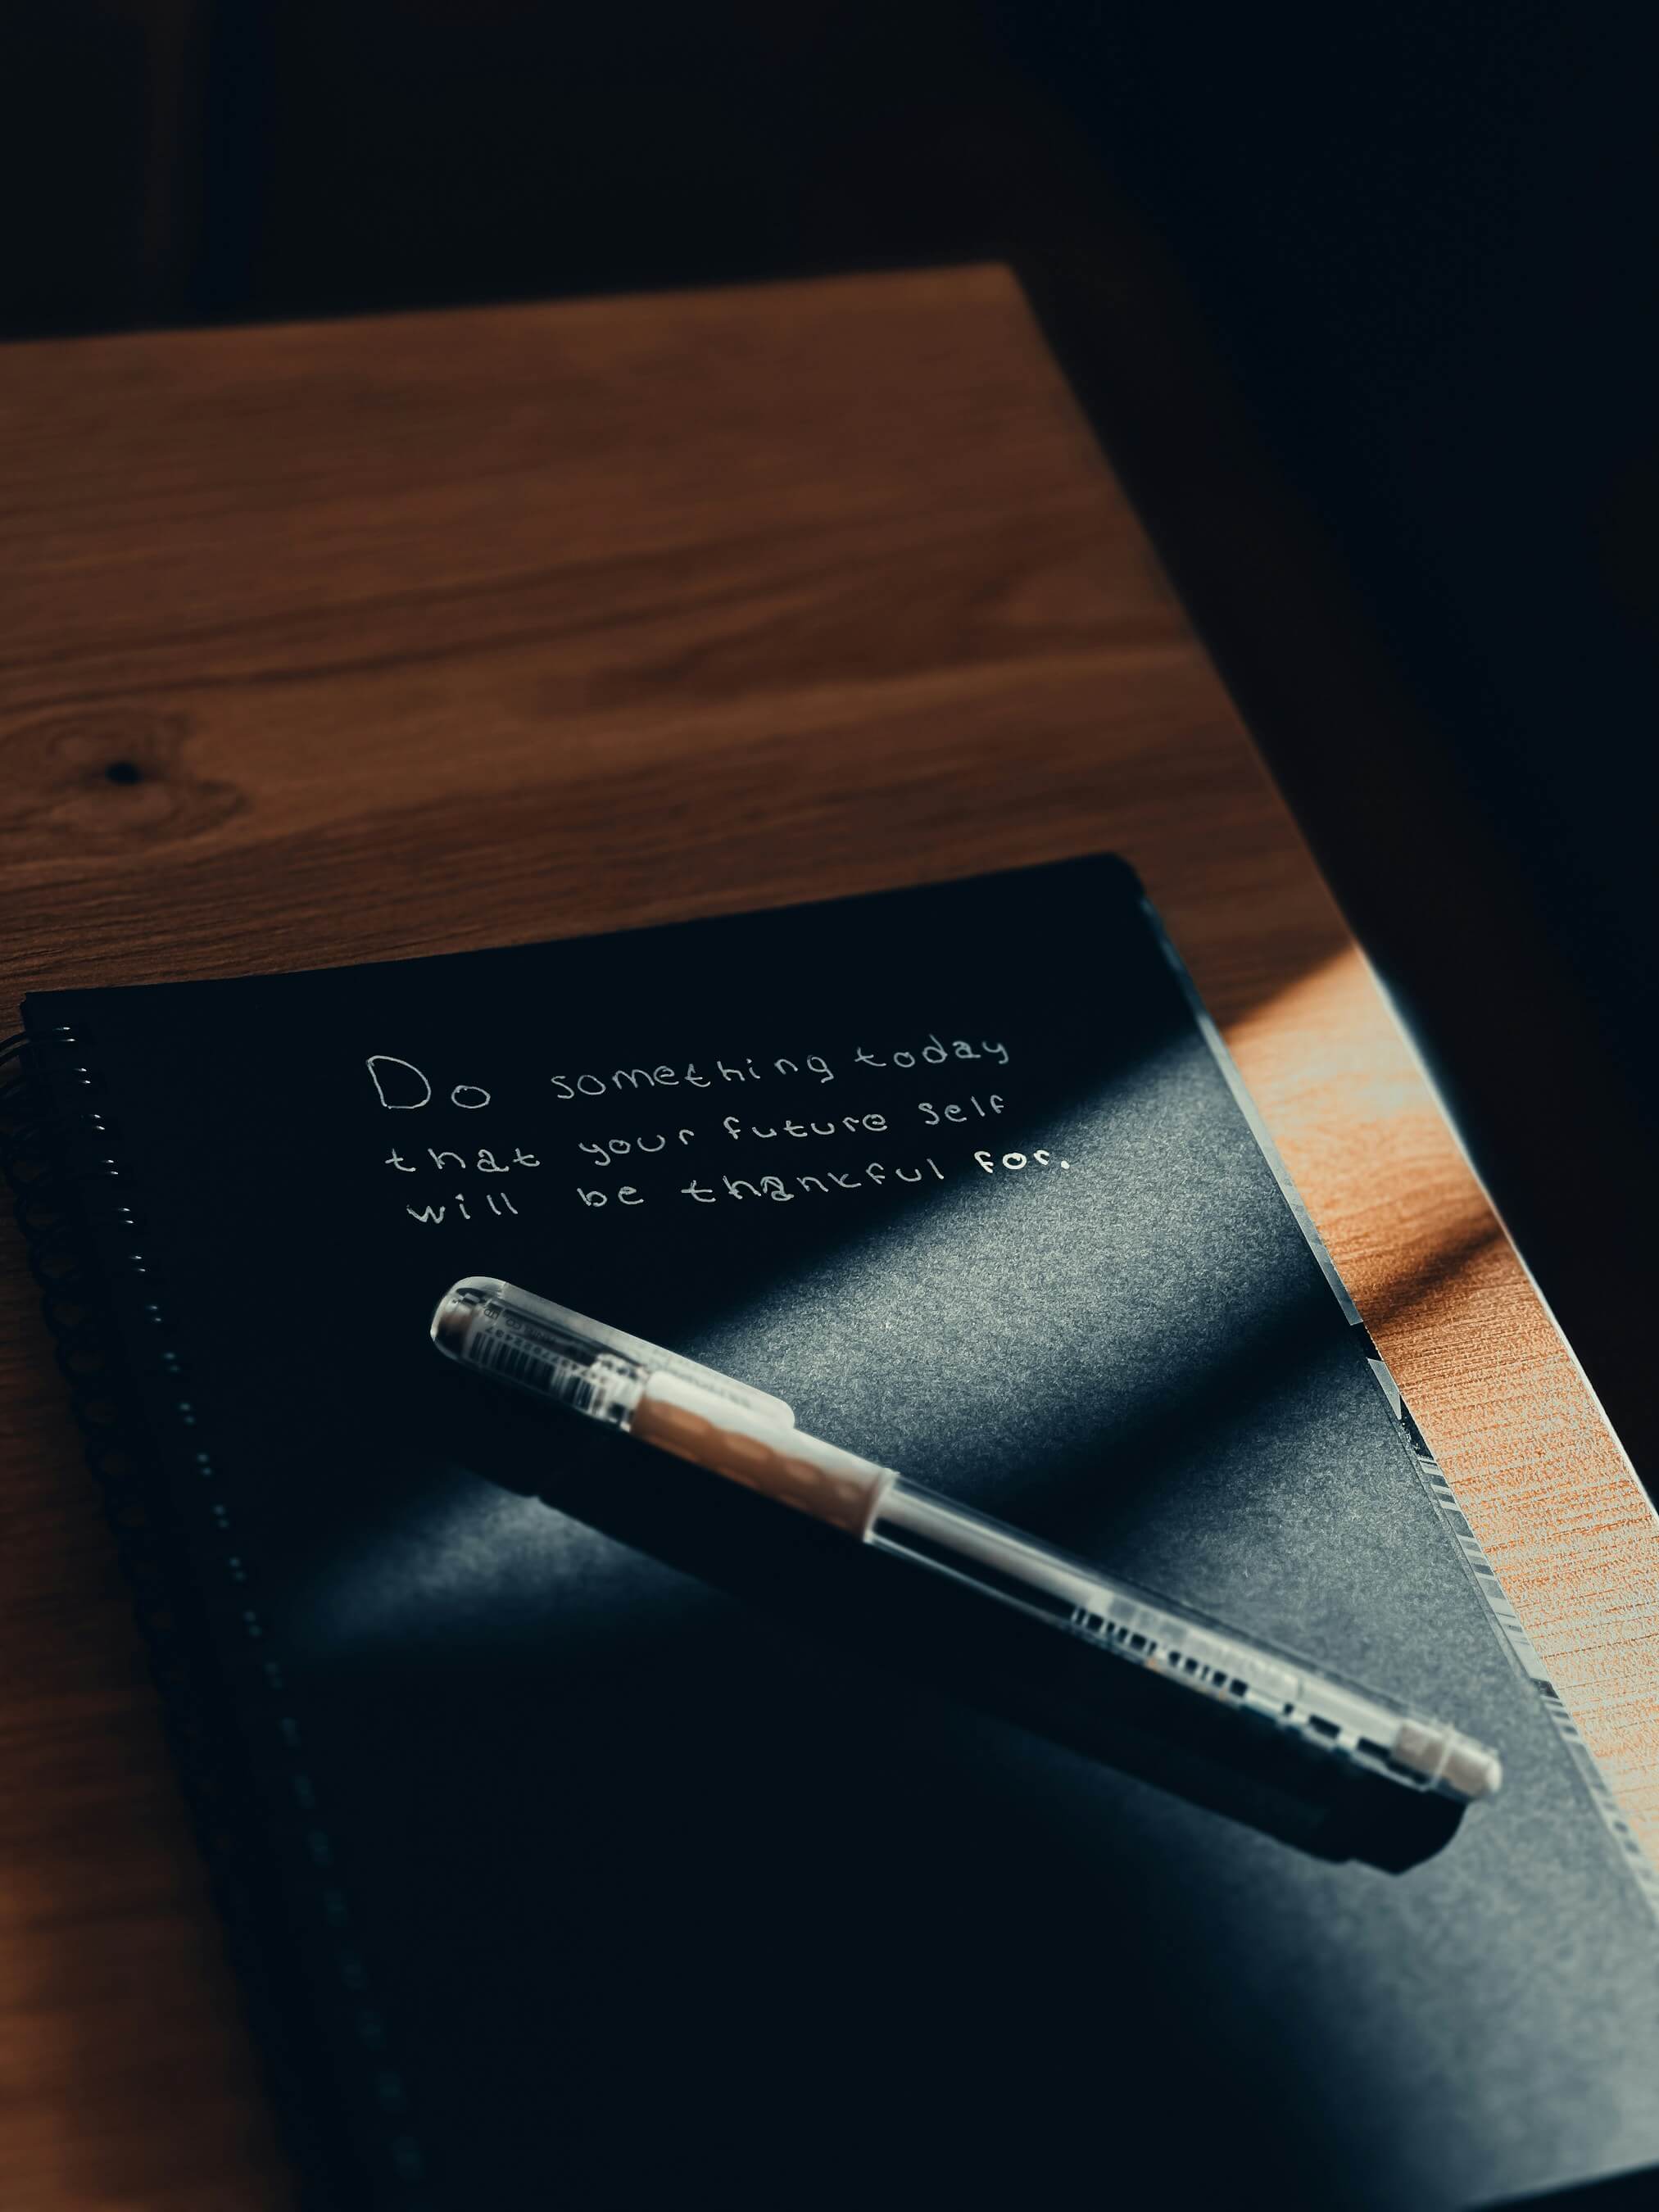 Do something today
that your future self
will be thankful for.